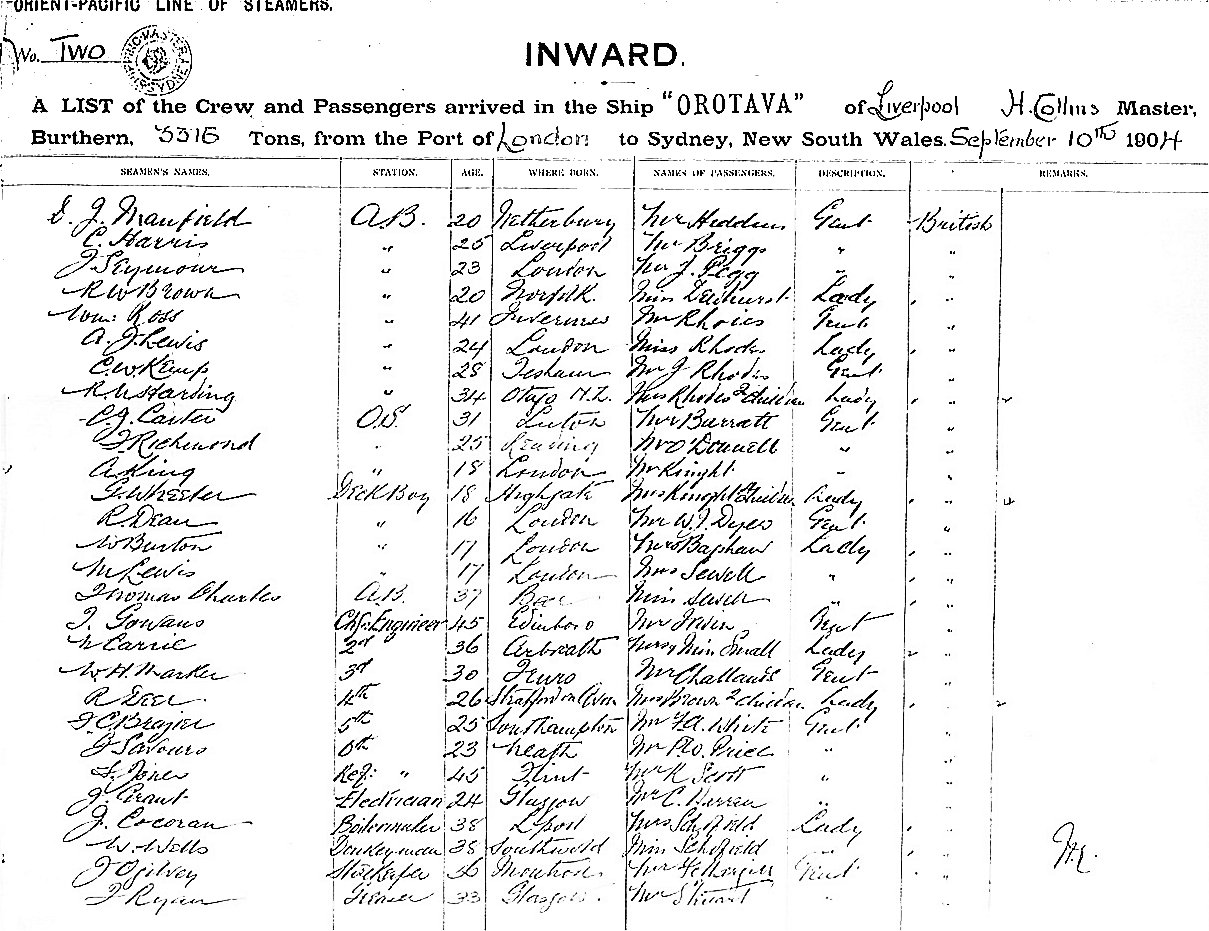 ORIENT-PACIFIC LINE OF STEAMERS.
No. Two
INWARD.
A LIST of the Crew and Passengers arrived in the Ship "OROTAVA" of Liverpool H. Collins Master,
Burthern, Tons, from the Port of London to Sydney, New South Wales. September 10th 1904
SEAMEN'S NAMES. STATION. AGE. WHERE BORN. NAMES OF PASSENGERS. DESCRIPTION. REMARKS.
J. Manfield A.B. 20 Netherbury Mr Gent British
C. Harris " 25 Liverpool Mr Briggs " "
J Seymour " 23 London Mr J. Pegg "
R W Brown " 20 Norfolk. Miss Dewhurst Lady "
Wm: Ross " 41 Inverness Mr Gent "
A. J. Lewis " 24 London Miss Rhodes Lady "
C. W. Kemp " 28 Mr J Rhodes Gent "
Harding " 34 Otago N.Z. Mrs Rhodes 2 children Lady "
C. J. Carter O.S. 31 Luton Mr Barratt Gent "
Richmond " 25 Reading Mr O'Donnell " "
A King " 18 London Mr Knight " "
G. Wheeler Deck Boy 18 Highgate Mrs Knight children Lady "
R Dean " 16 London Mr W. J. Gent "
W Burton " 17 London Bagshaw Lady "
M Lewis " 17 London Mrs Sewell " "
Thomas Charles A.B. 37 Miss Sewell " "
Gowans Chf: Engineer 45 Edinboro Mr Irvin Gent "
2nd 36 Arbroath Miss Small Lady "
W. H. Marker 3rd 30 Truro Mr Gent "
R 4th 26 Stratford on Avon Mrs Brown 2 children Lady "
Brazier 5th 25 Southampton Mr White Gent "
Savours 6th 23 Neath Mr Price " "
Jones Ref: " 45 Flint Mr R Scott " "
J. Grant Electrician 24 Glasgow Mr C. "
J. Cocoran Boilermaker 38 L'pool Mrs Schofield Lady "
W. Wells Donkeyman 38 Southwold Miss Schofield " "
J Ogilvey 36 Montrose Mr Gent "
Ryan Greaser 33 Glasgow Mr Stuart " "